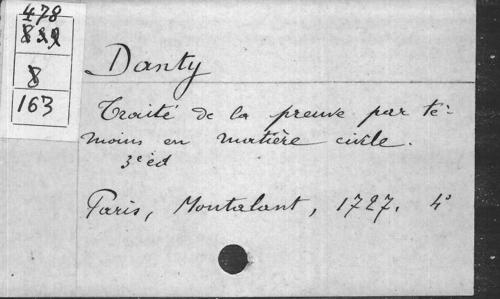 478
822
8
163
Danty
Traité de la preuve par té-
moins en matière civile.
3e éd
Paris, Montalant, 1727. 4°